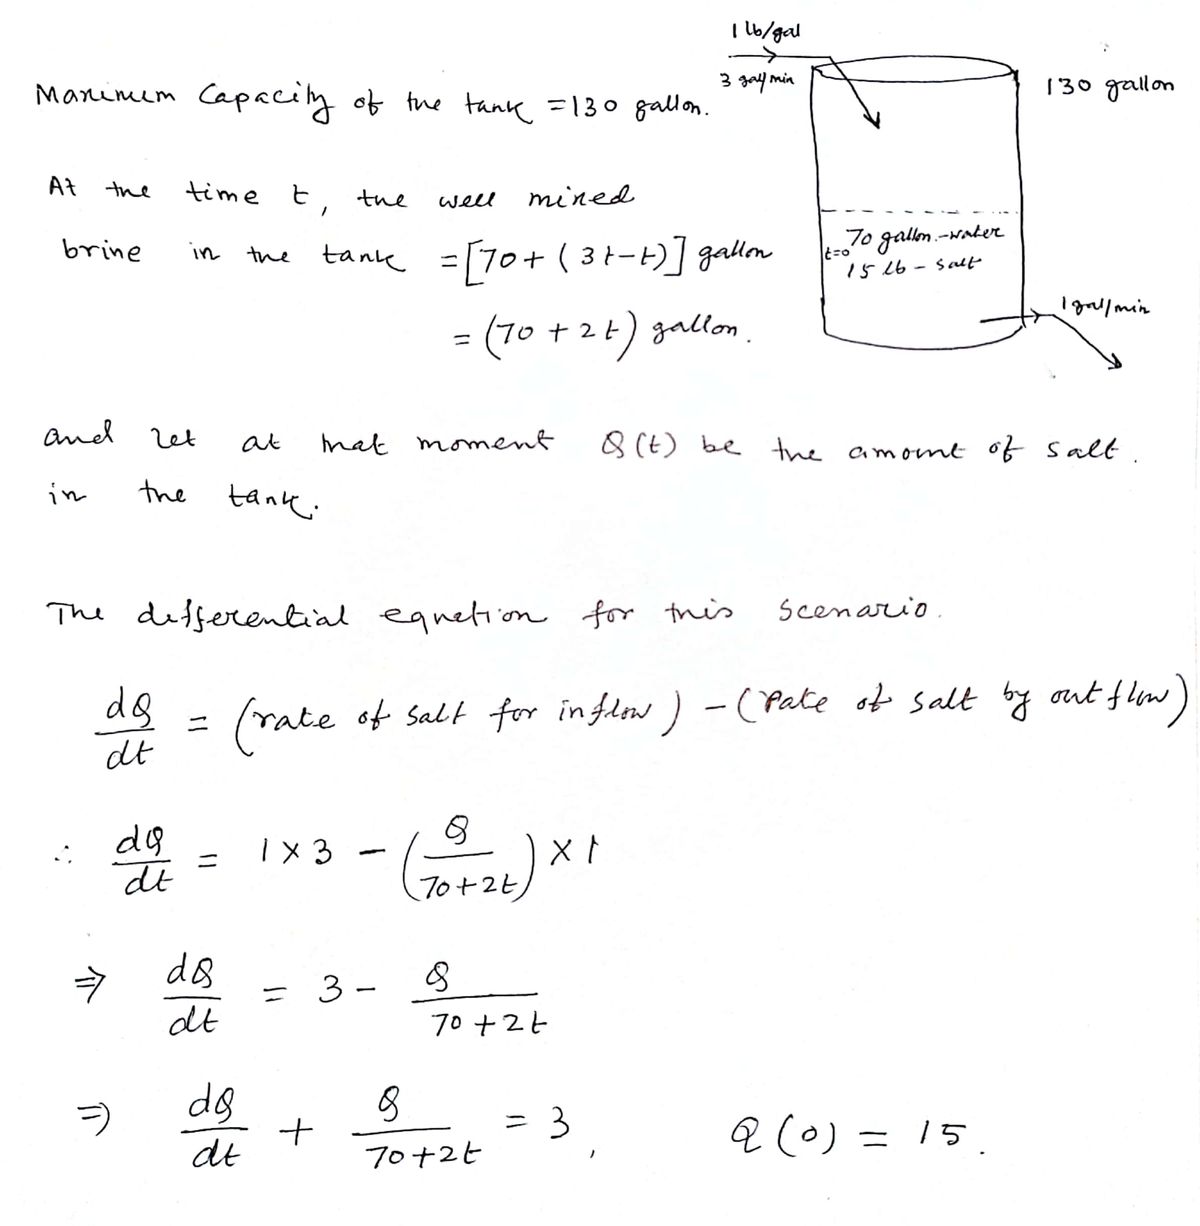 1 lb/gal
3 gal/min
130 gallon
Maximum Capacity of the tank = 130 gallon.
At the time t, the well mixed
brine in the tank = [70 + (3t-t)] gallon
= (70 + 2t) gallon.
70 gallon - water
t=0
15 lb - salt
1 gal/min
and let at that moment Q(t) be the amount of salt.
in the tank.
The differential equation for this scenario.
dQ/dt = (rate of salt for inflow) - (rate of salt by outflow)
∴ dQ/dt = 1 × 3 - (Q/(70+2t)) × 1
⇒ dQ/dt = 3 - Q/(70+2t)
⇒ dQ/dt + Q/(70+2t) = 3, Q(0) = 15.